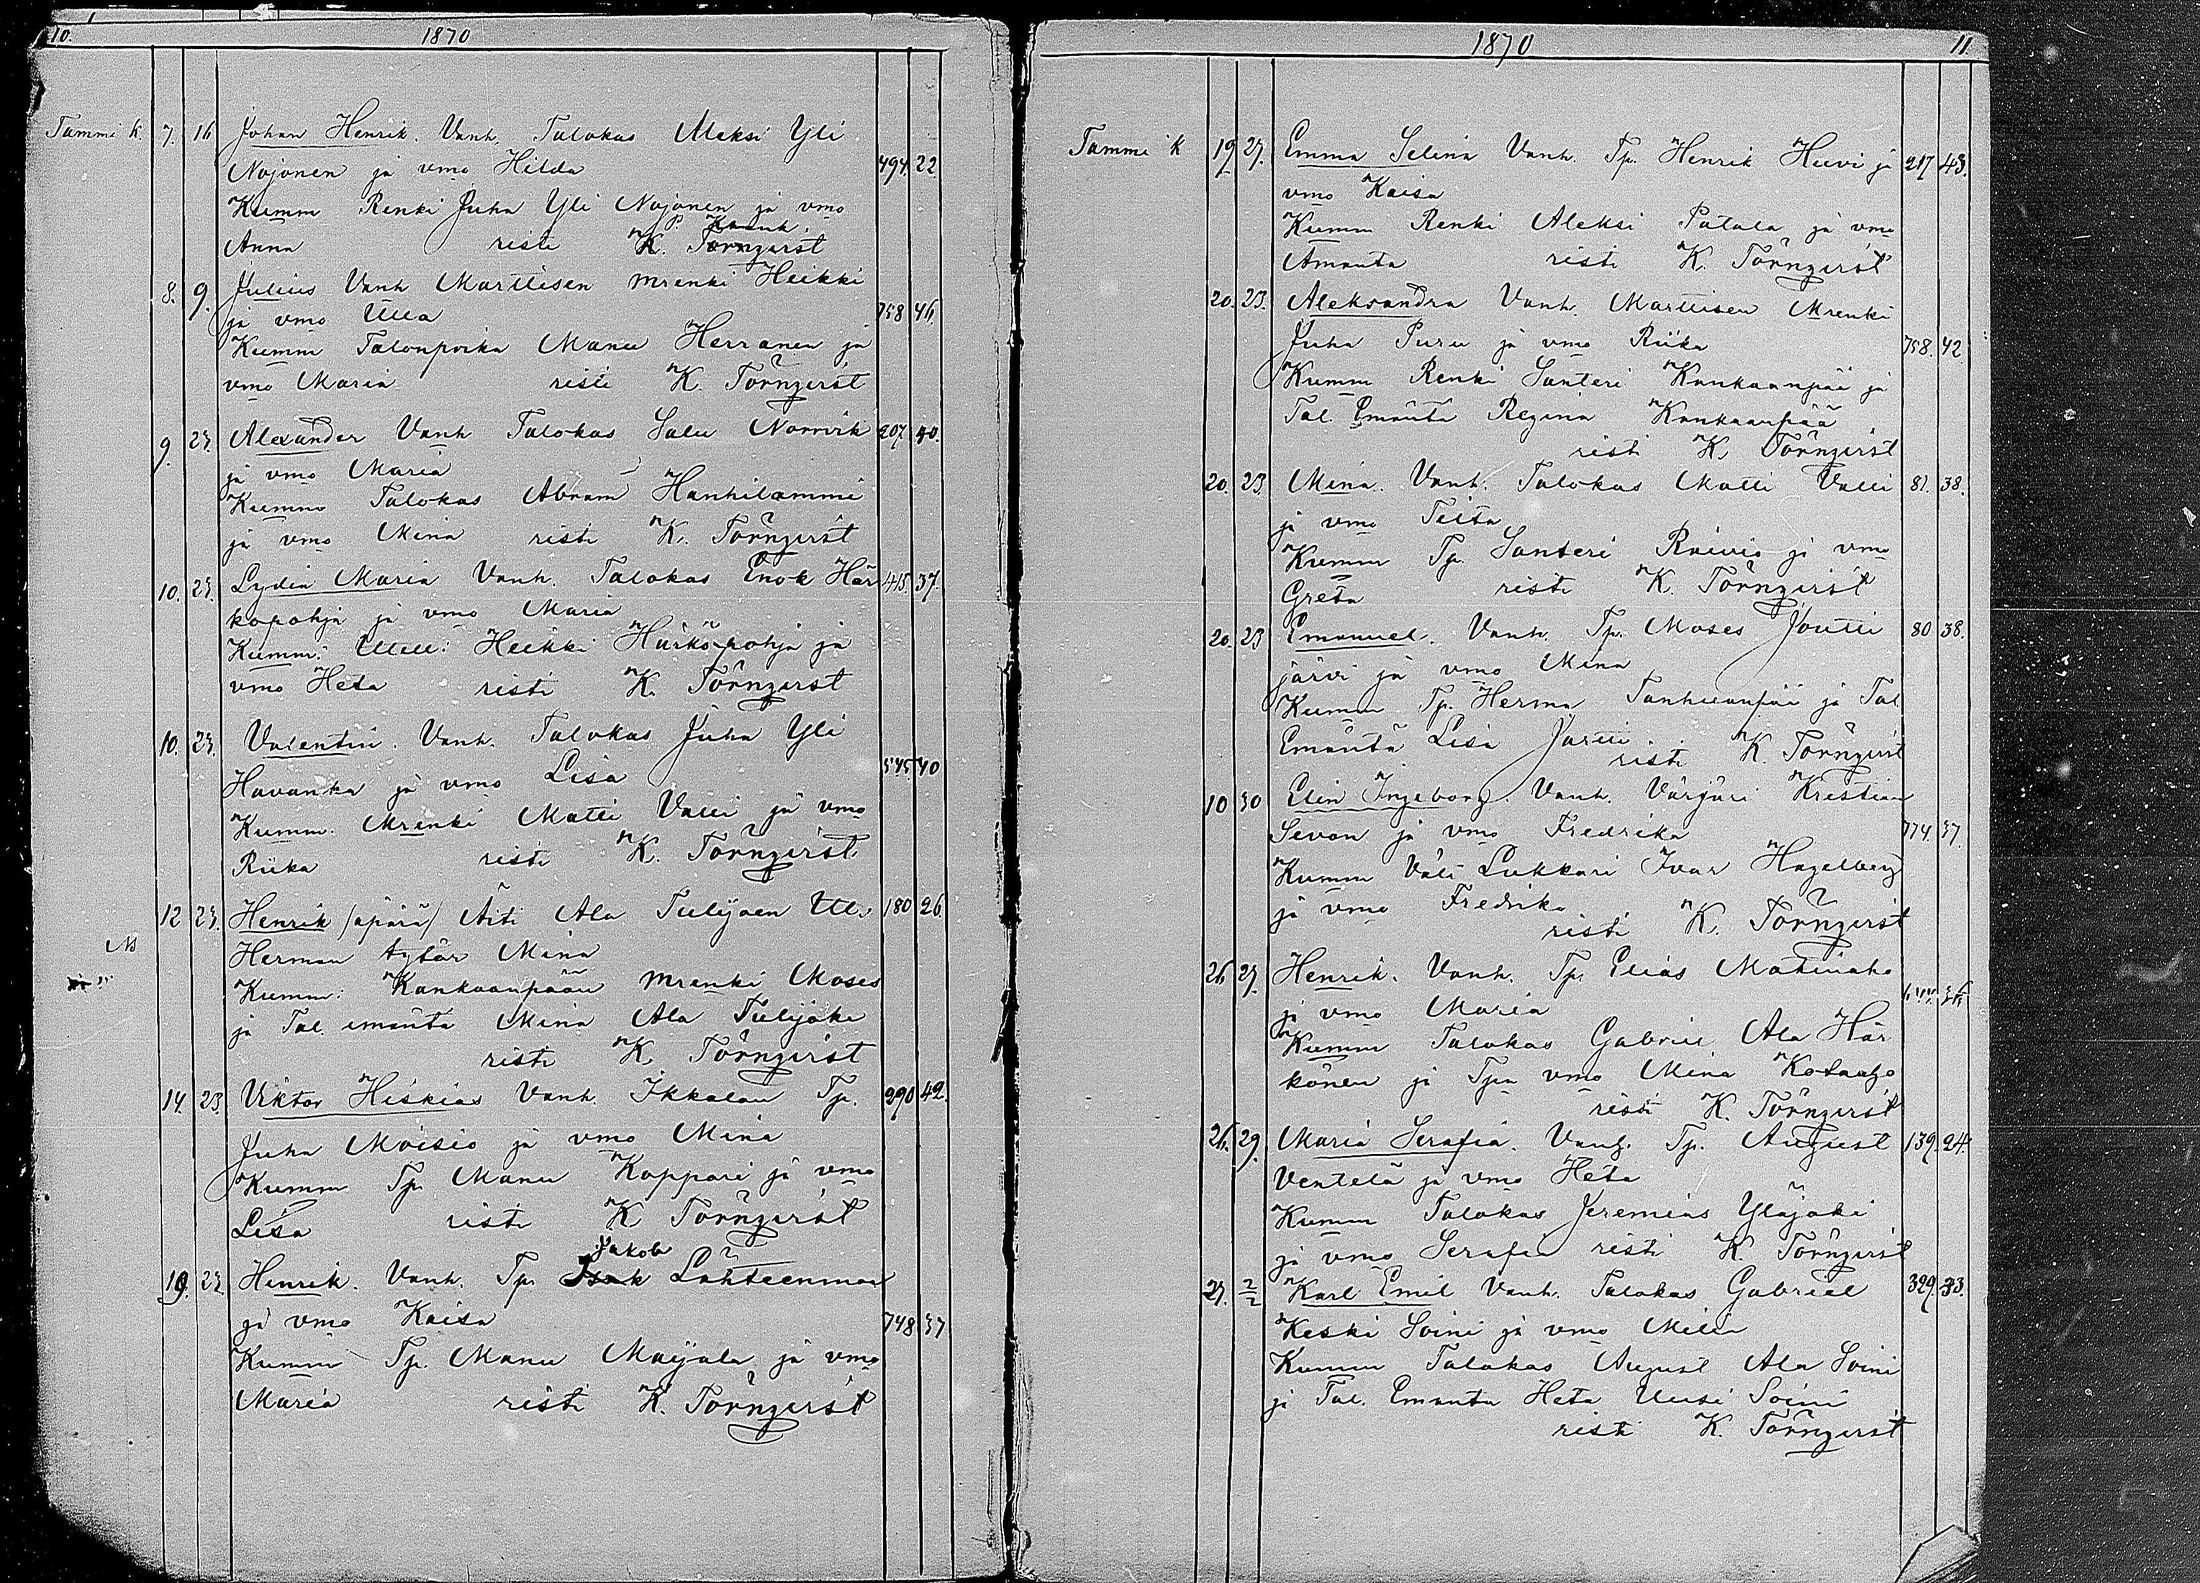 10. 1870
Tammi k. 7. 16 Johan Henrik. Vanh. Talokas Aleksi Yli
Nojonen ja vmo Hilda 494. 22
Kumm Renki Juha Yli Nojonen ja vmo
Anna risti K. Törnqvist
8. 9. Julius Vanh Marttisen mrenki Heikki
ja vmo Ulla 758 46.
Kumm Talonpoika Manu Herranen ja
vmo Maria risti K. Törnqvist
9. 23. Alexander Vanh Talokas Salu Norrvik 207. 40.
ja vmo Maria
Kumm Talokas Abram Hanhilammi
ja vmo Mina risti K. Törnqvist
10. 23. Lydia Maria Vanh. Talokas Enok Här 415 37.
kopohja ja vmo Maria
Kumm: Heikki Härköpohja ja
vmo Heta risti K. Törnqvist
10. 23. Valentin. Vanh. Talokas Juha Yli
Havanka ja vmo Lisa 545. 40
Kumm. Mrenki Matti Valli ja vmo
Riika risti K. Törnqvist
12 23. Henrik /äpärä/ Äiti Ala Tulijoen 180 26.
Herman tytär Mina
Kumm: Kankaanpään mrenki Moses
ja Tal. emäntä Mina Ala Tulijoki
risti K. Törnqvist
14. 23. Viktor Hiskias Vanh. Ikkalan Tp. 290 42.
Juha Moisio ja vmo Mina
Kumm Tp. Manu Koppari ja vmo
Lisa risti K Törnqvist
Jakob
19. 23. Henrik. Vanh. Tp. Isak Lähteenmaa
ja vmo Kaisa 748 37
Kumm Tp. Manu Maijala ja vmo
Maria risti K. Törnqvist
1870 11.
Tammi k 19. 27. Emma Selina Vanh. Tp. Henrik Heevi ja 217 43.
vmo Kaisa
Kumm Renki Aleksi Patala ja vmo
Amanta risti K. Törnqvist
20. 23. Aleksandra Vanh. Marttisen Mrenki
Juha Puru ja vmo Riika 758. 42
Kumm Renki Santeri Kankaanpää ja
Tal. Emäntä Regina Kankaanpää
risti K. Törnqvist
20. 23. Mina. Vanh. Talokas Matti Valli 81. 38.
ja vmo
Kumm Tp. Santeri Raivio ja vmo
Greta risti K. Törnqvist
20. 23 Emanuel. Vanh. Tp. Moses Joutti 80 38.
järvi ja vmo Mina
Kumm Tp. Herma Tanhuanpää ja Tal
Emäntä Lisa risti K. Törnqvist
10 30 Elin Ingeborg. Vanh. Värjäri Kristian
ja vmo Fredrika 774. 37.
Kumm Väli Lukkari Ivar Hagelberg
ja vmo Fredrika
risti K. Törnqvist
26 27. Henrik. Vanh. Tp. Elias
ja vmo Maria
Kumm Talokas Gabriel Ala Här
könen ja Tpn vmo Mina
risti K. Törnqvist
26. 29. Maria Serafia. Vanh. Tp. August 139. 24.
Ventelä ja vmo Heta
Kumm Talokas Jeremias Yläjoki
ja vmo Serafia risti K. Törnqvist
27. 2/2 Karl Emil Vanh. Talokas Gabriel 329. 33.
Keski Soini ja vmo Milia
Kumm Talokas August Ala Soini
ja Tal. Emäntä Heta Uusi Soini
risti K. Törnqvist